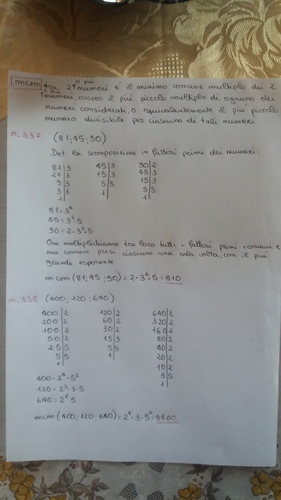 mcm tra 2 o più numeri è il minimo comune multiplo dei 2
numeri, ovvero il più piccolo multiplo di ognuno dei
numeri considerati, o equivalentemente il più piccolo
numero divisibile per ciascuno di tali numeri
n.337 (81;45;90)
Det. la scomposizione in fattori primi dei numeri.
81|3 45|3 90|2
27|3 15|3 45|3
9|3 5|5 15|3
3|3 1| 5|5
1| 1|
81=3⁴
45=3²·5
90=2·3²·5
Ora moltiplichiamo tra loro tutti i fattori primi comuni e
non comuni presi ciascuno una sola volta, con il più
grande esponente
mcm(81;45;90)=2·3⁴·5=810
n.338 (400;120;640)
400|2 120|2 640|2
200|2 60|2 320|2
100|2 30|2 160|2
50|2 15|3 80|2
25|5 5|5 40|2
5|5 1| 20|2
1| 10|2
5|5
1|
400=2⁴·5²
120=2³·3·5
640=2⁷·5
mcm(400;120;640)=2⁷·3·5²=9600